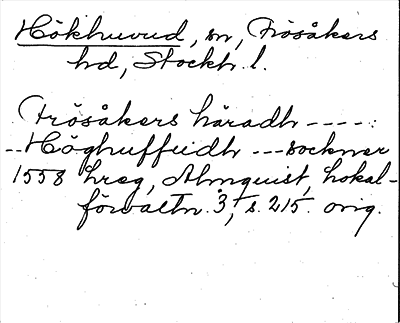 Hökhuvud, sn, Frösåkers
hd, Stockh. l.
Frösåkers häradh ----:
--Höghuffwdh ---sockner
1558 hreg, Almquist, Lokal-
förvaltn. 3, s. 215. orig.